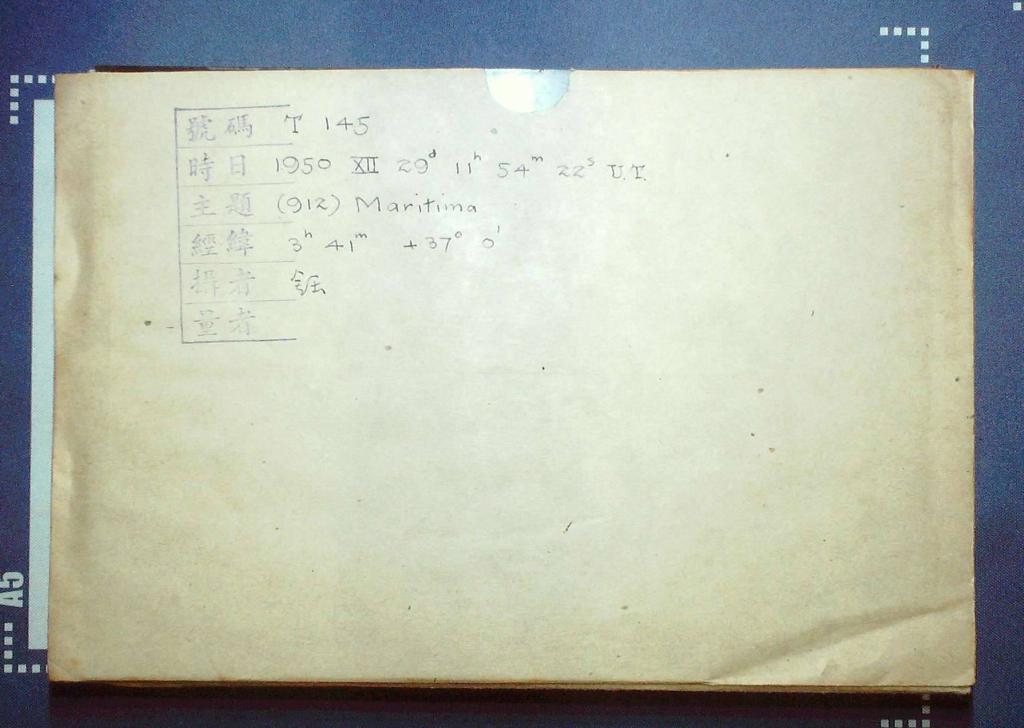 號碼 T 145
時日 1950 XII 29ᵈ 11ʰ 54ᵐ 22ˢ U.T.
主題 (912) Maritima
經緯 3ʰ 41ᵐ +37° 0'
攝者
量者
A5